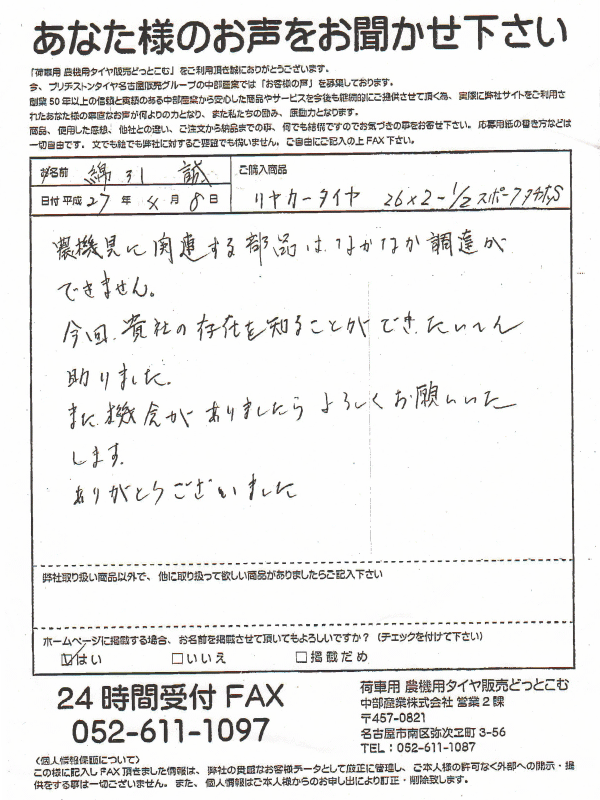 あなた様のお声をお聞かせ下さい
「荷車用 農機用タイヤ販売どっとこむ」をご利用頂き誠にありがとうございます。
今、ブリヂストンタイヤ名古屋販売グループの中部産業では「お客様の声」を募集しております。
創業50年以上の信頼と実績のある中部産業から安心した商品やサービスを今後も継続的にご提供させて頂く為、実際に弊社サイトをご利用さ
れたあなた様の率直なお声が何よりの力となり、また私たちの励み、原動力となります。
商品、使用した感想、他社との違い、ご注文から納品までの事、何でも結構ですのでお気づきの事をお寄せ下さい。応募用紙の書き方などは
一切自由です。文でも絵でも弊社に対するご要望でも構いません。ご自由にご記入の上FAX下さい。
お名前 綿引 誠
ご購入商品
日付 平成 27 年 4 月 8 日
リヤカータイヤ 26×2-1/2 スポーク
農機具に関連する部品は、なかなか調達が
できません。
今回、貴社の存在を知ることができ、たいへん
助りました。
また、機会がありましたらよろしくお願いいた
します。
ありがとうございました
弊社取り扱い商品以外で、他に取り扱って欲しい商品がありましたらご記入下さい
ホームページに掲載する場合、お名前を掲載させて頂いてもよろしいですか？（チェックを付けて下さい）
☑はい □いいえ □掲載だめ
24時間受付FAX
052-611-1097
荷車用 農機用タイヤ販売どっとこむ
中部産業株式会社 営業2課
〒457-0821
名古屋市南区弥次ヱ町3-56
TEL：052-611-1087
〈個人情報保証について〉
この様に記入しFAX頂きました情報は、弊社の貴重なお客様データとして厳正に管理し、ご本人様の許可なく外部への開示・提
供をする事は一切ございません。また、個人情報はご本人様からのお申し出により訂正・削除致します。